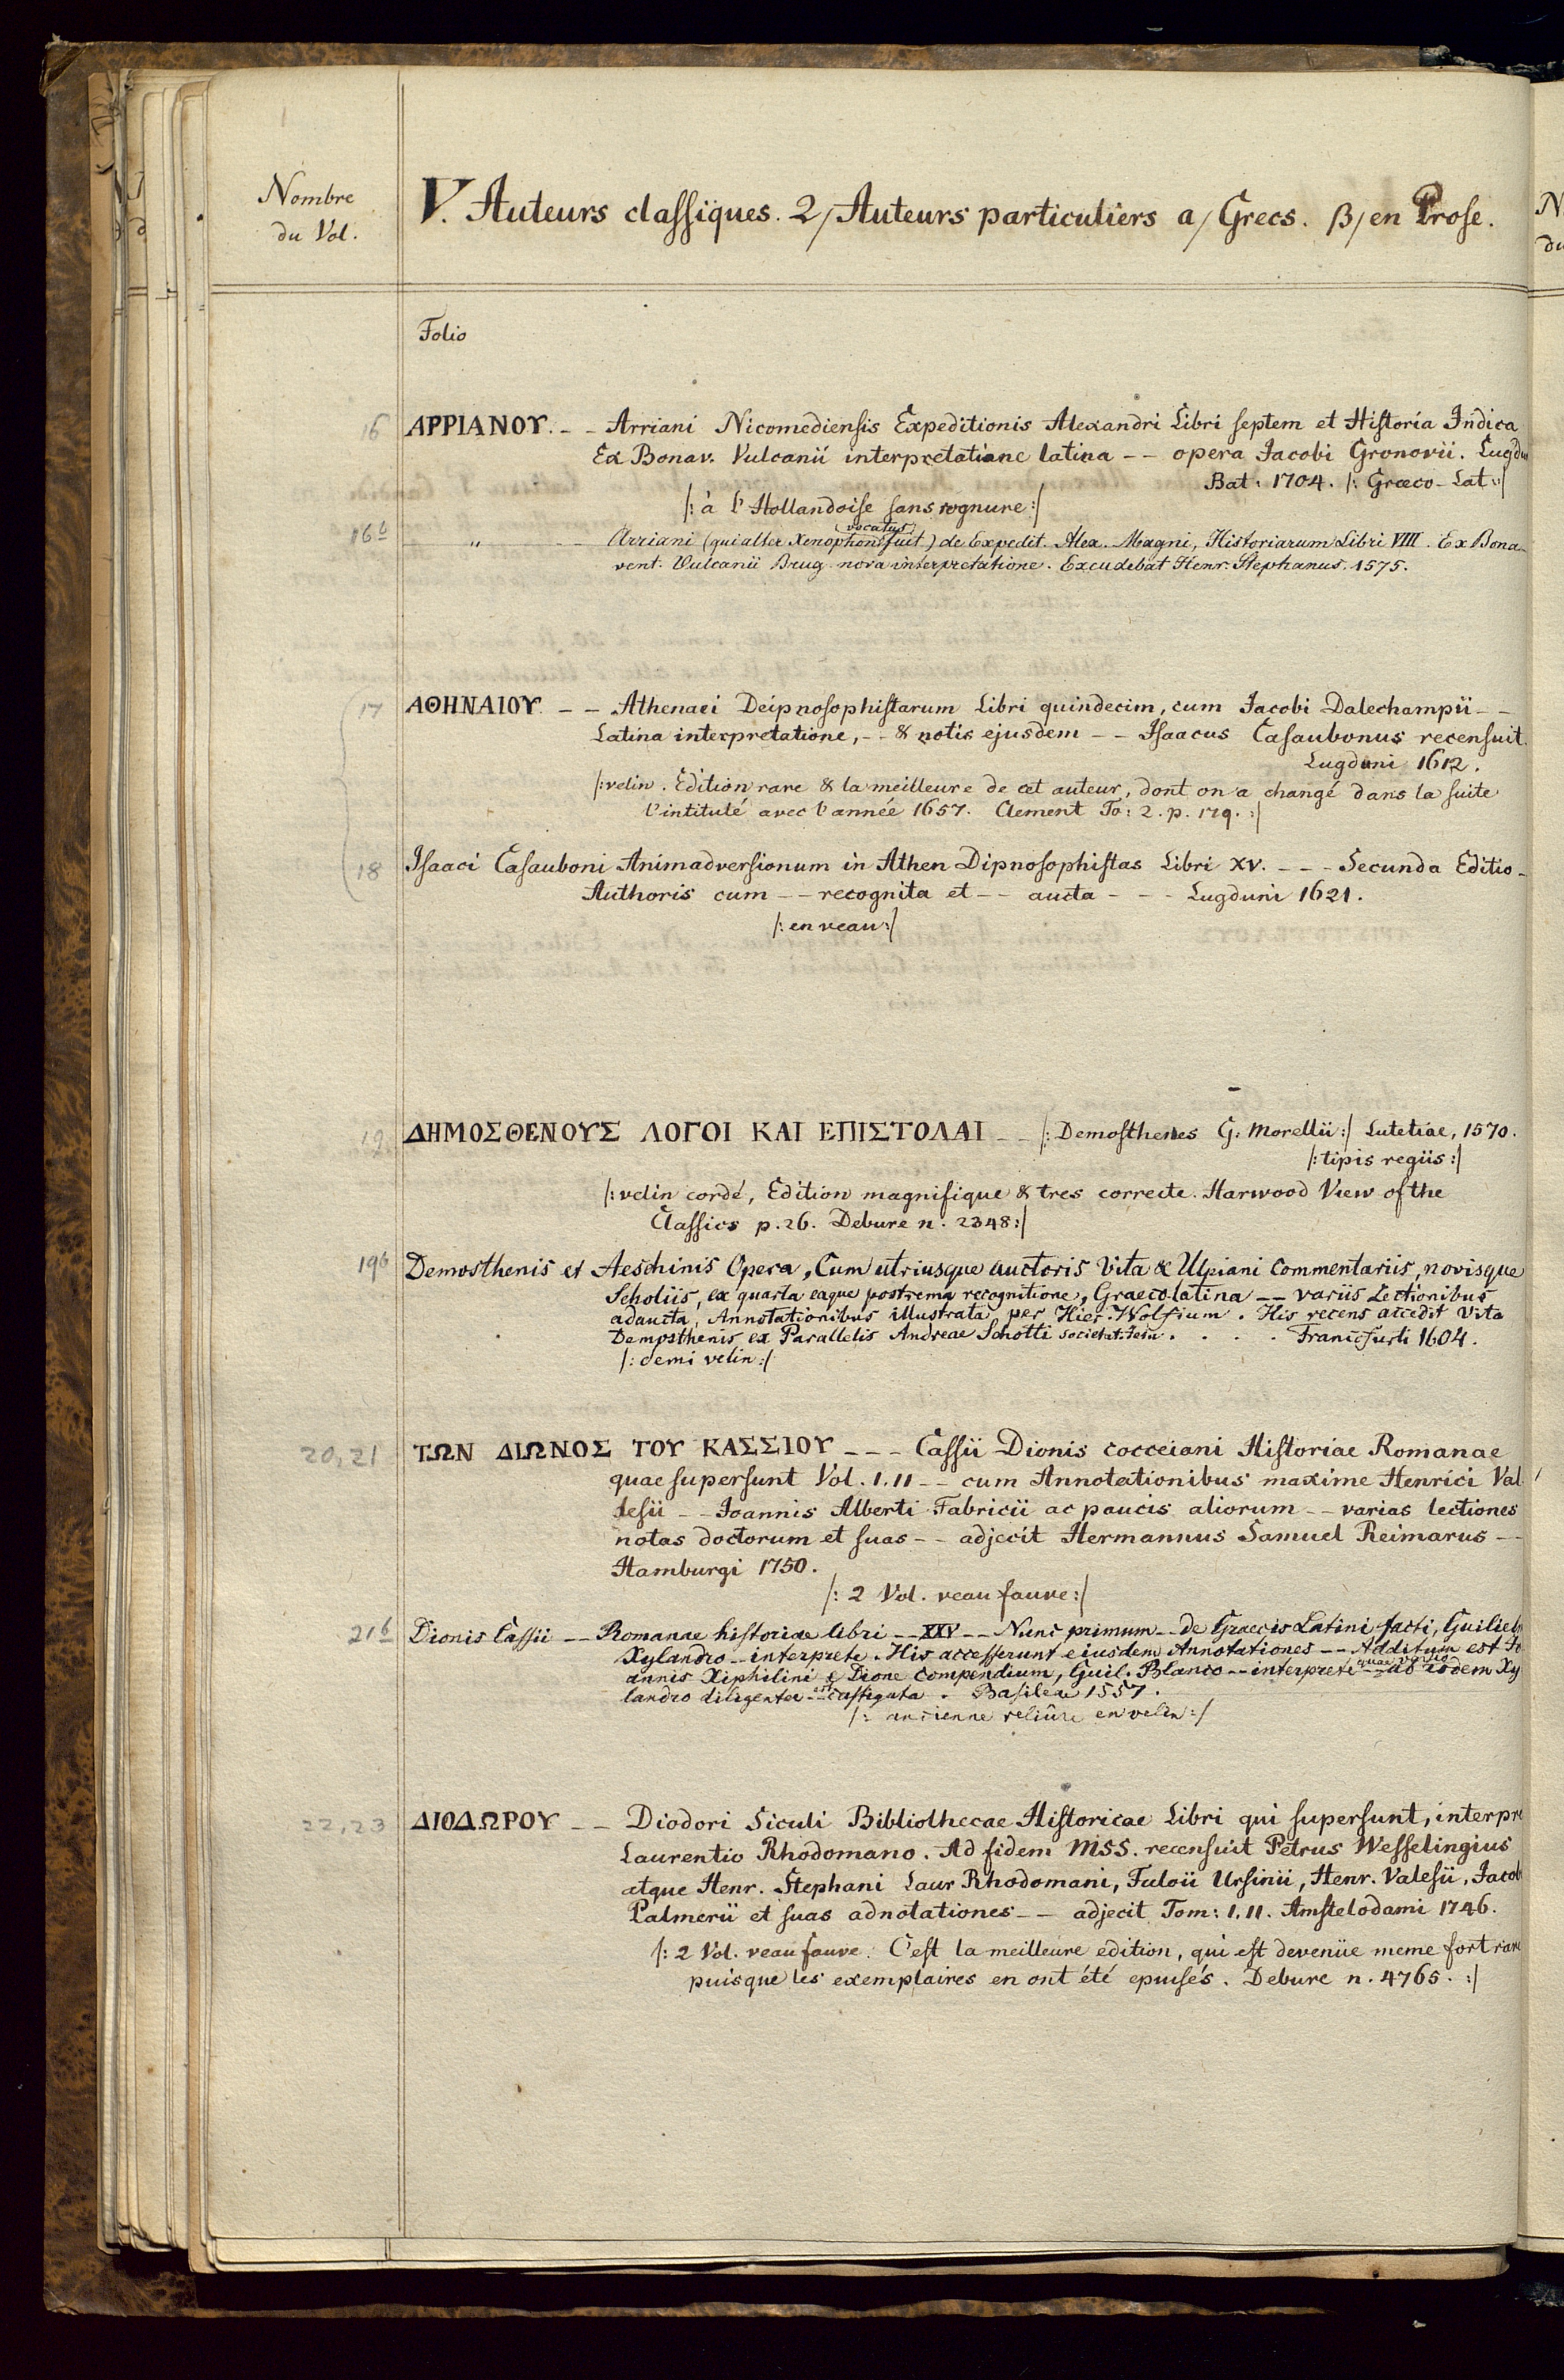 Nombre
du Vol.
V. Auteurs classiques. 2/ Auteurs particuliers a/ Grecs. β/ en Prose.
Folio
16 ΑΡΡΙΑΝΟΥ. - - Arriani Nicomediensis Expeditionis Alexandri Libri septem et Historia Indica
Ex Bonav. Vulcanii interpretatione latina -- opera Jacobi Gronovii. Lugdu
Bat. 1704. /: Græco-Lat :/
/: à l'Hollandoise sans rognure :/
16b " -- Arriani (qui alter Xenophon (vocatus) fuit) de Expedit. Alex. Magni, Historiarum Libri VIII. Ex Bona-
vent. Vulcanii Brug. nova interpretatione. Excudebat Henr. Stephanus. 1575.
17 ΑΘΗΝΑΙΟΥ -- Athenaei Deipnosophistarum Libri quindecim, cum Jacobi Dalechampii --
Latina interpretatione, -- & notis ejusdem -- Isaacus Casaubonus recensuit.
Lugduni 1612.
/: velin. Edition rare & la meilleure de cet auteur, dont on a changé dans la suite
l'intitulé avec l'année 1657. Clement To: 2. p. 179. :/
18 Isaaci Casauboni Animadversionum in Athen Dipnosophistas Libri XV. --- Secunda Editio -
Authoris cum -- recognita et -- aucta --- Lugduni 1621.
/: en veau :/
19 ΔΗΜΟΣΘΕΝΟΥΣ ΛΟΓΟΙ ΚΑΙ ΕΠΙΣΤΟΛΑΙ -- /: Demosthenes G. Morellii :/ Lutetiae, 1570.
/: tipis regiis :/
/: velin cordé, Edition magnifique & tres correcte. Harwood View of the
Classics p. 26. Debure n. 2348 :/
19b Demosthenis et Aeschinis Opera, Cum utriusque auctoris Vita & Ulpiani Commentariis, novisque
Scholiis, ex quarta eaque postrema recognitione, Graecolatina -- variis Lectionibus
adaucta, Annotationibus illustrata per Hier. Wolfium. His recens accedit Vita
Demosthenis ex Parallelis Andreae Schotti Societat. Jesu . . . . Francfurti 1604.
/: demi velin :/
20, 21 ΤΩΝ ΔΙΩΝΟΣ ΤΟΥ ΚΑΣΣΙΟΥ --- Cassii Dionis cocceiani Historiae Romanae
quae supersunt Vol. I. II -- cum Annotationibus maxime Henrici Val
lesii -- Joannis Alberti Fabricii ac paucis aliorum -- varias lectiones
notas doctorum et suas -- adjecit Hermannus Samuel Reimarus --
Hamburgi 1750.
/: 2 Vol. veau fauve :/
21b Dionis Cassii -- Romanae historiae libri -- XXV -- Nunc primum -- de Graecis Latini facti, Guilielm
Xylandro -- interprete. His accesserunt ejusdem Annotationes -- Additum est Jo
annis Xiphilini e Dione Compendium, Guil. Blanco -- interprete quae versio -- ab eodem Xy
landro diligenter -- est castigata. Basileae 1557.
/: ancienne reliûre en velin :/
22, 23 ΔΙΟΔΩΡΟΥ -- Diodori Siculi Bibliothecae Historicae Libri qui supersunt, interpre
Laurentio Rhodomano. Ad fidem MSS. recensuit Petrus Wesselingius
atque Henr. Stephani Laur Rhodomani, Fulvii Ursinii, Henr. Valesii, Jacob
Palmerii et suas adnotationes -- adjecit Tom: I. II. Amstelodami 1746.
/: 2 Vol. veau fauve. C'est la meilleure edition, qui est devenüe meme fort rare
puisque les exemplaires en ont été epuisés. Debure n. 4765. :/